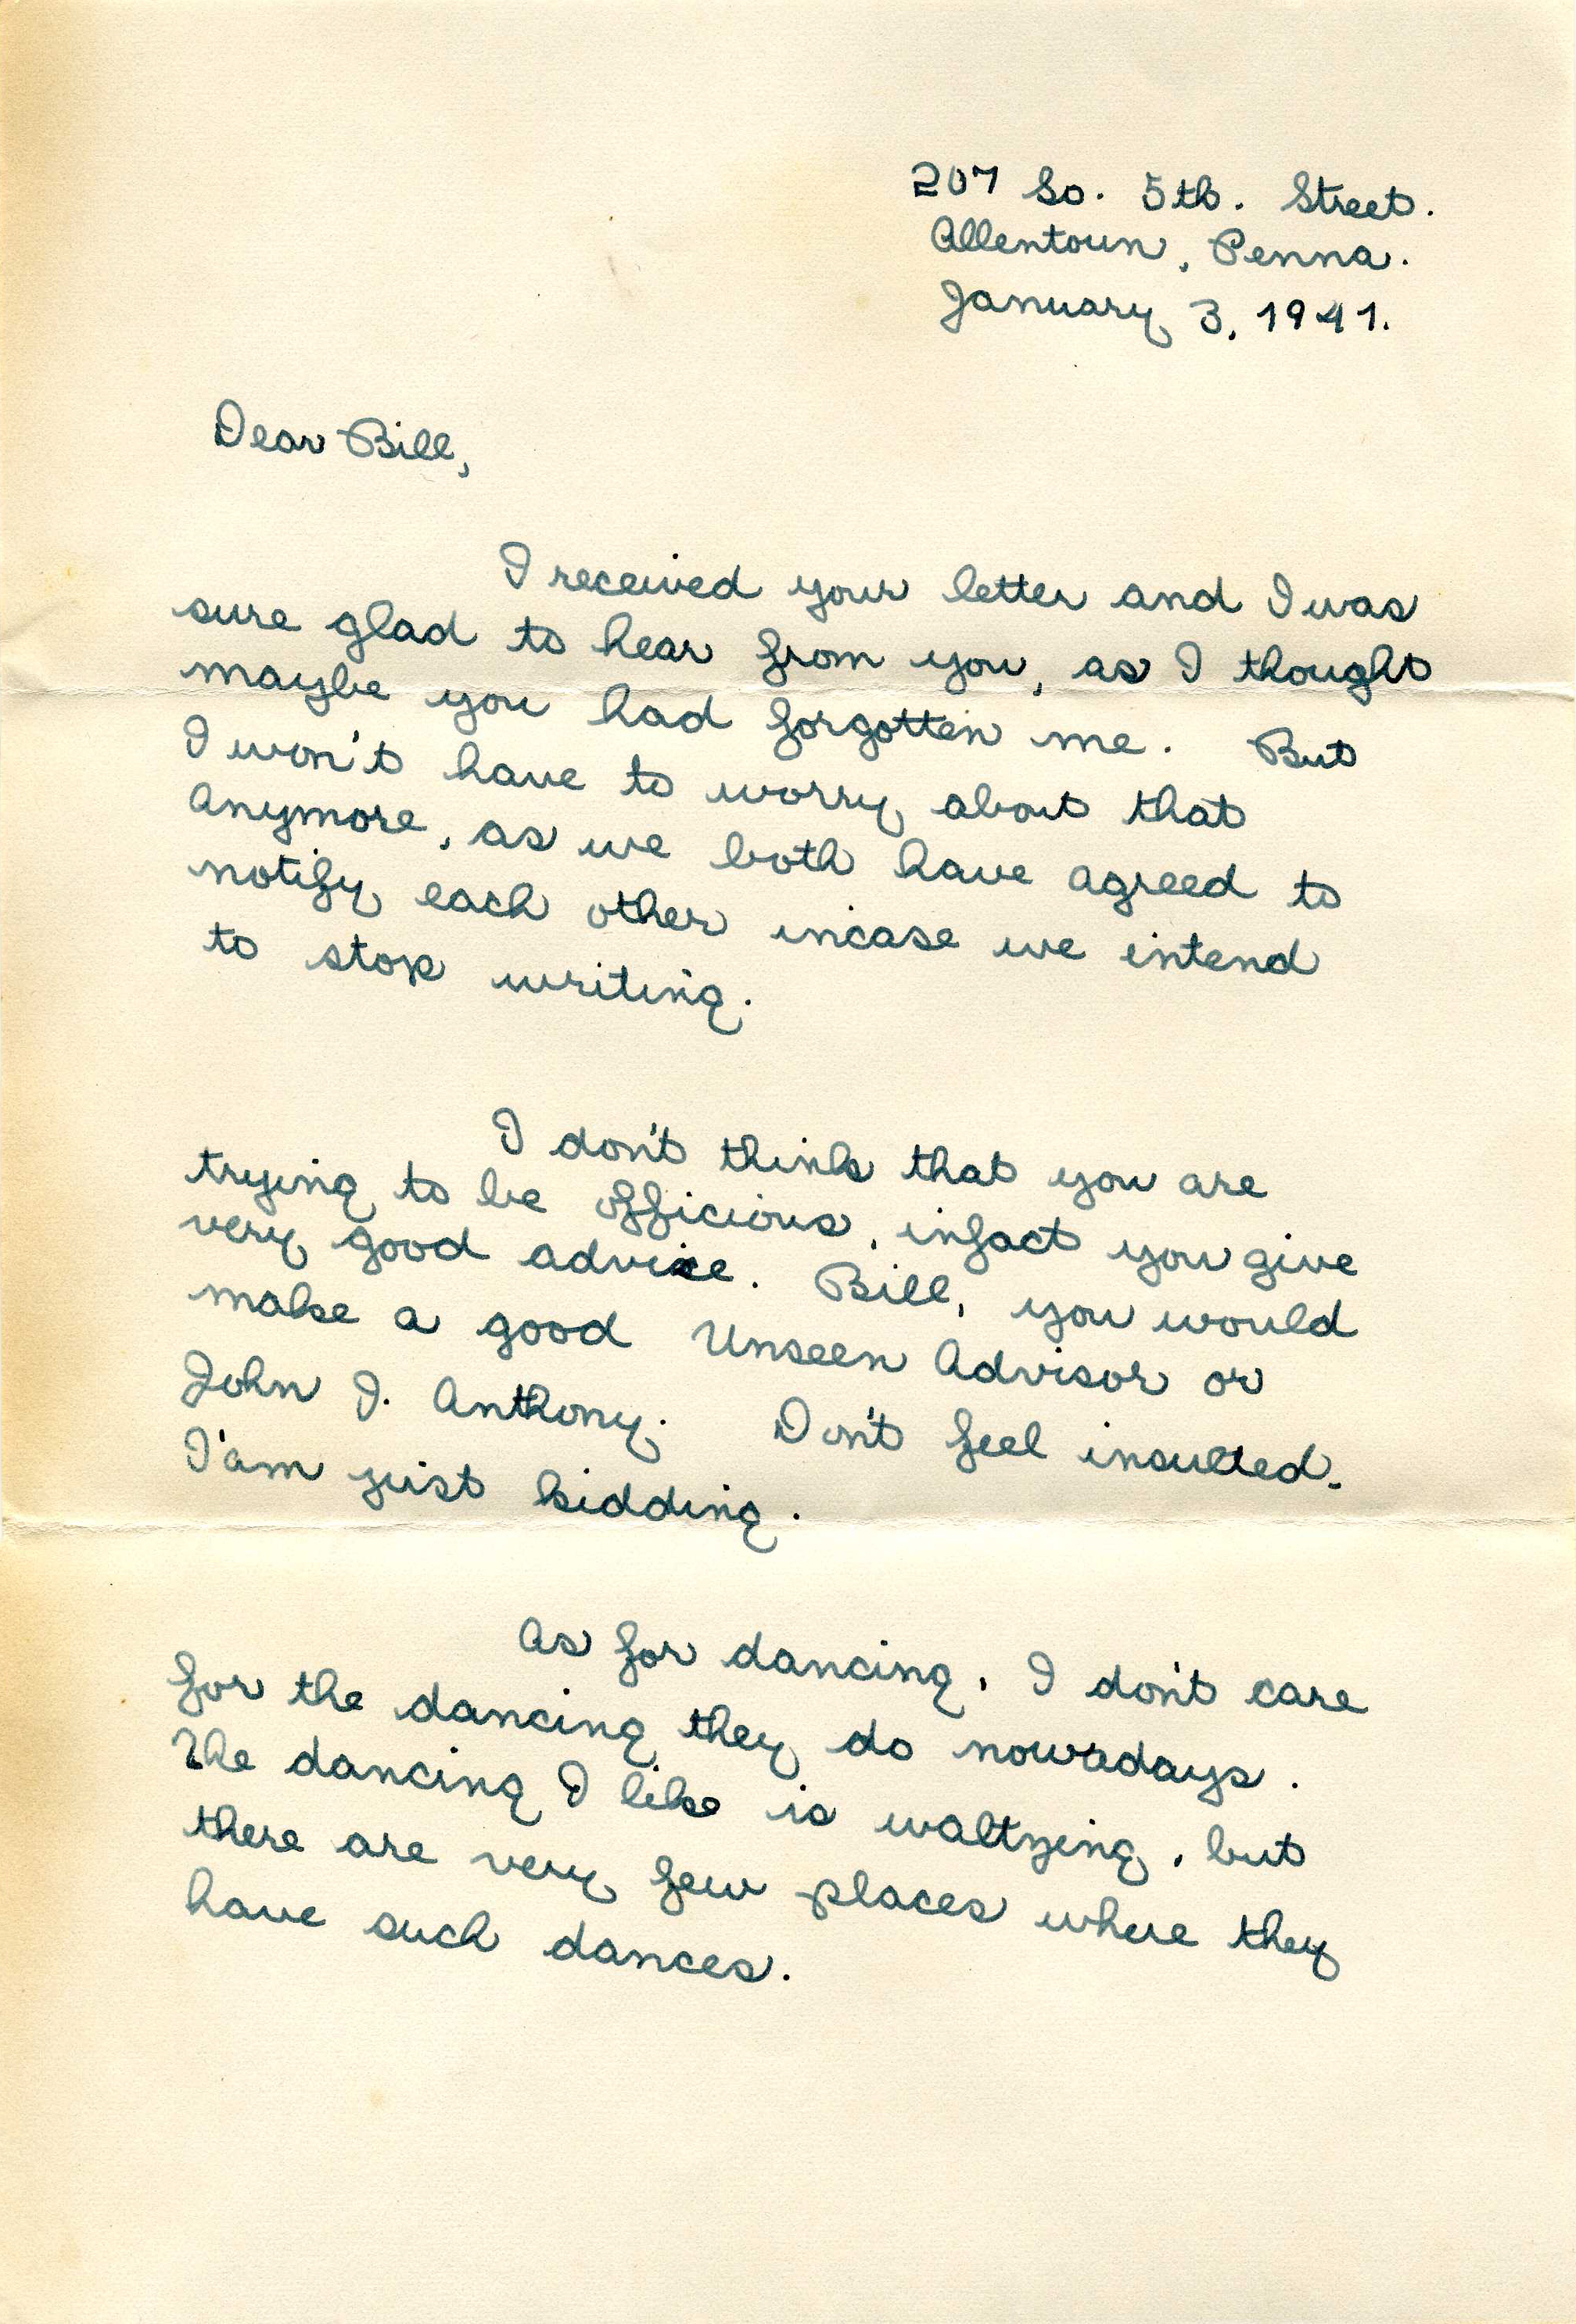 207 So. 5th. Street.
Allentown, Penna.
January 3, 1941.
Dear Bill,
I received your letter and I was
sure glad to hear from you, as I thought
maybe you had forgotten me. But
I won't have to worry about that
anymore, as we both have agreed to
notify each other incase we intend
to stop writing.
I don't think that you are
trying to be officious, infact you give
very good advice. Bill, you would
make a good Unseen Advisor or
John J. Anthony. Don't feel insulted.
I'am just kidding.
As for dancing, I don't care
for the dancing they do nowadays.
The dancing I like is waltzing, but
there are very few places where they
have such dances.